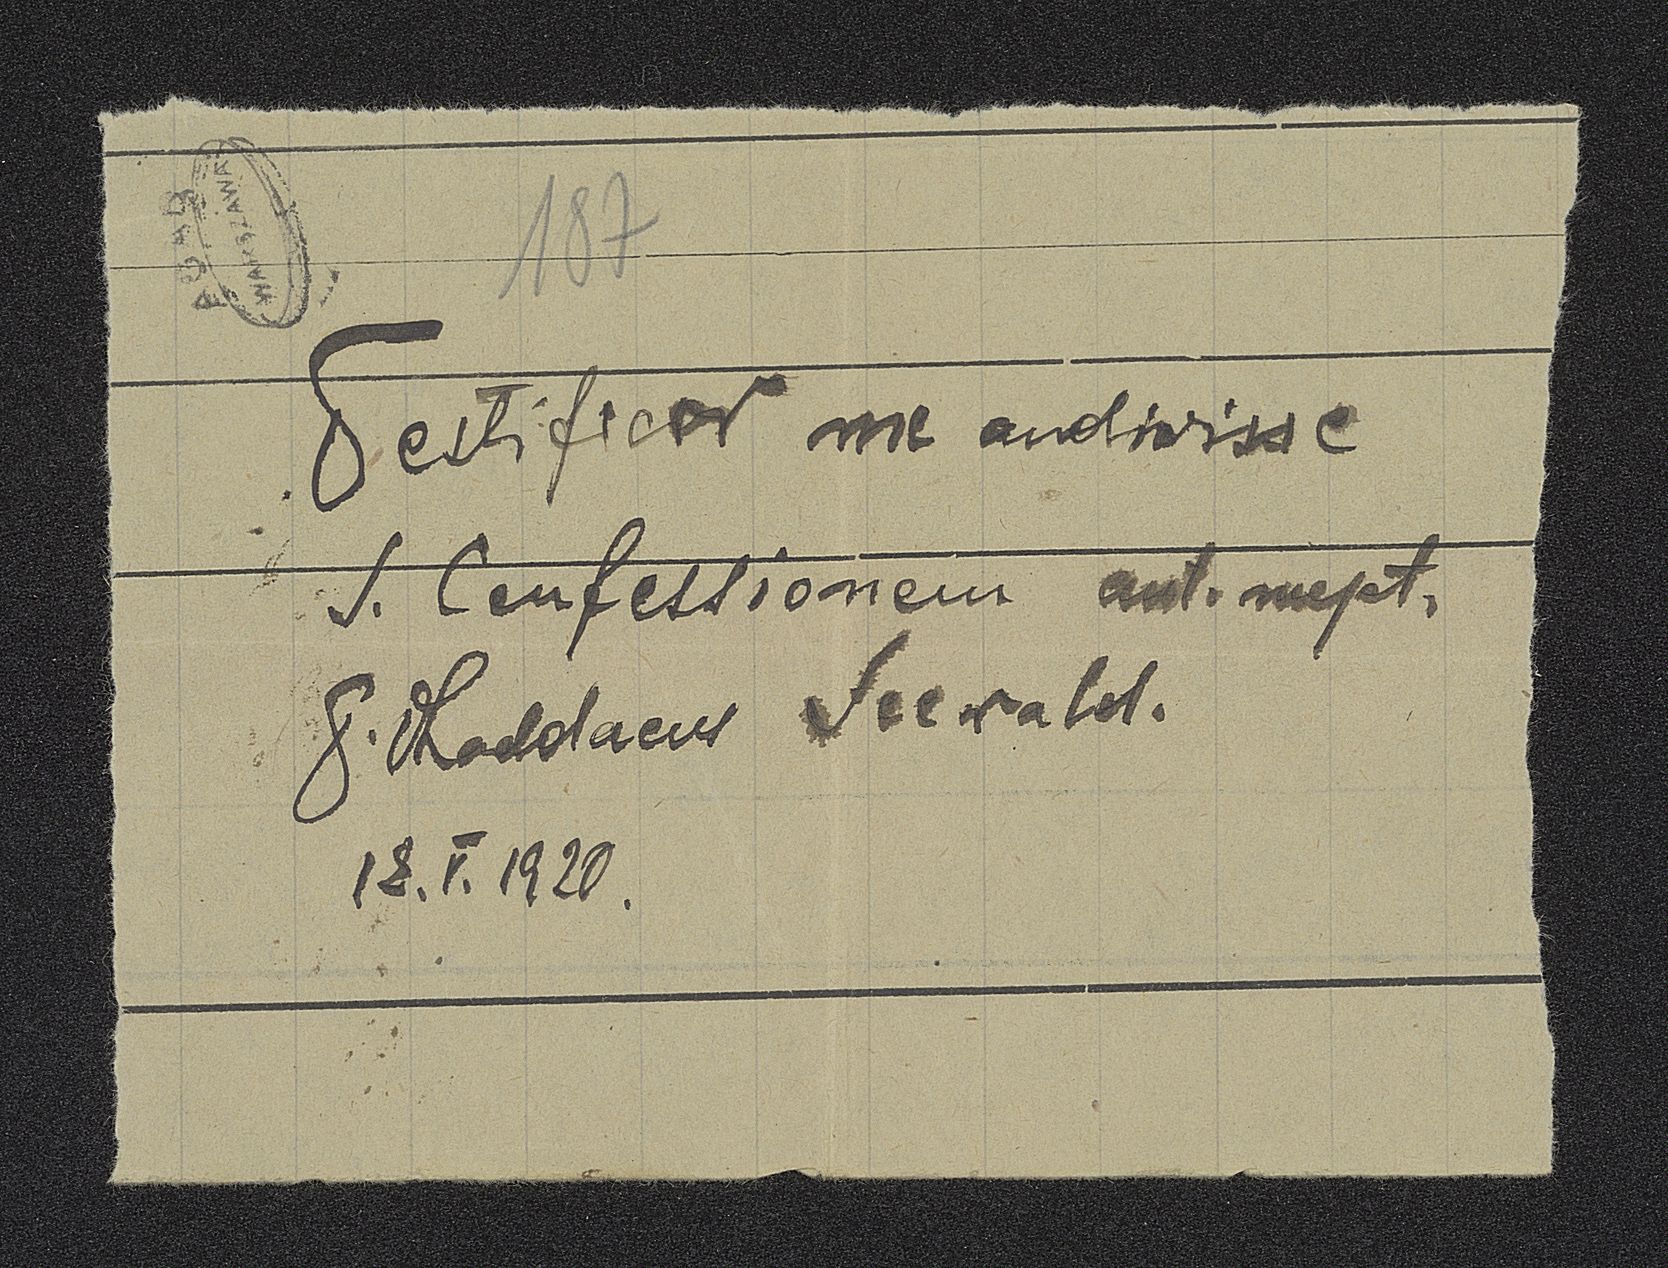 AGAD
WARSZAWA
187
Testificor me audivisse
S. Confessionem ant. nupt.
P. Thaddaeus Seewald.
18. V. 1920.